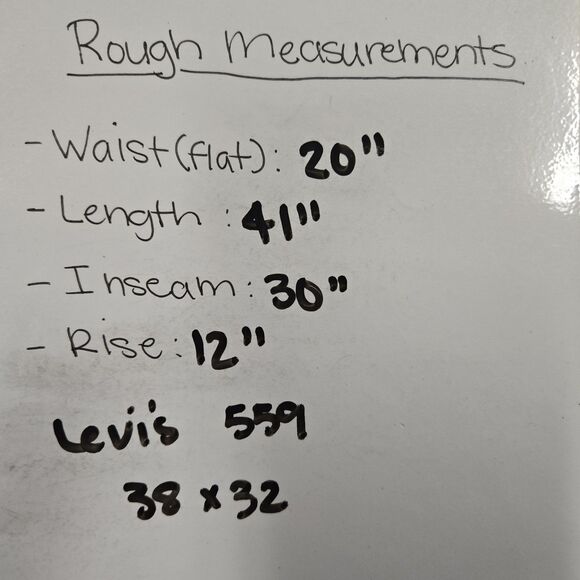 Rough Measurements
- Waist(flat): 20"
- Length : 41"
- Inseam: 30"
- Rise: 12"
Levi's 559
38 x 32